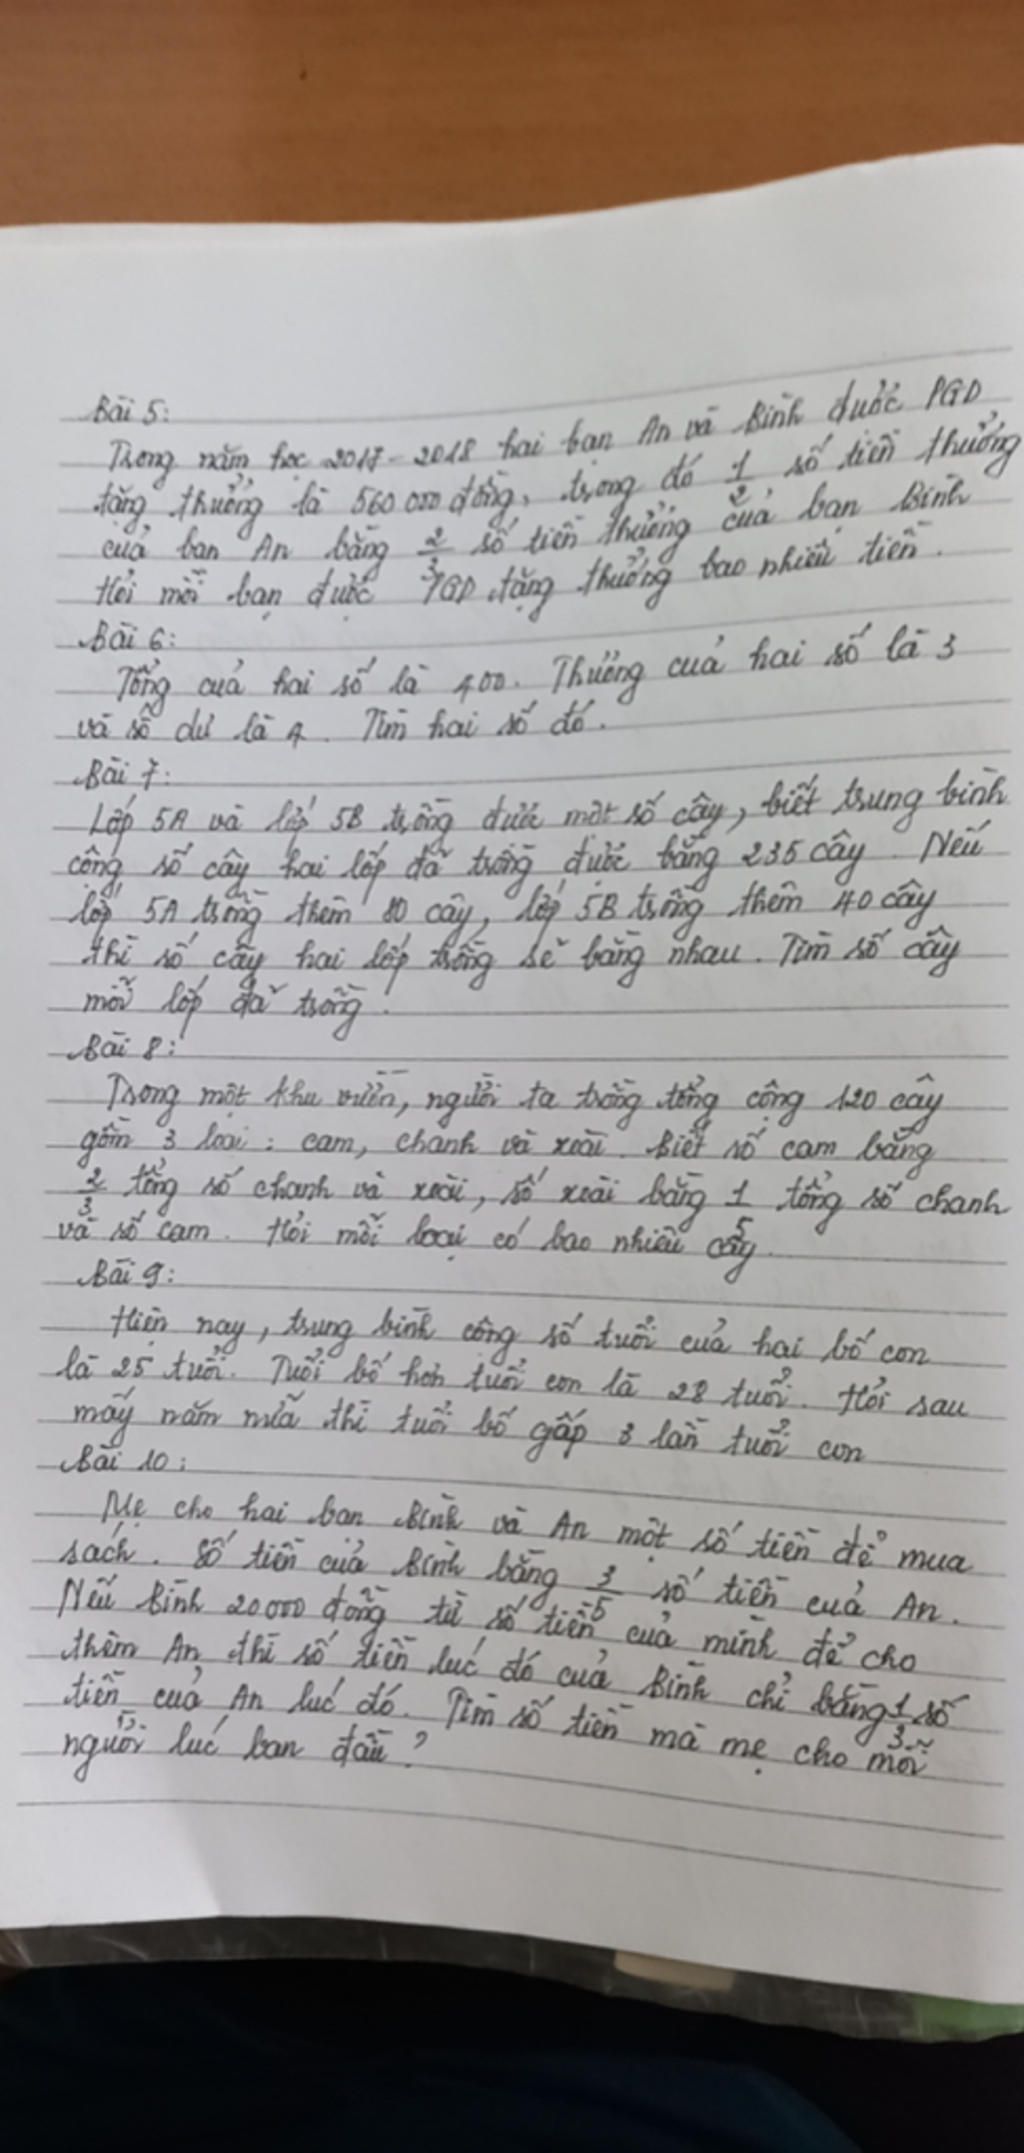 Bài 5:
Trong năm học 2017-2018 hai bạn An và Bình được PGD
tặng thưởng là 560 000 đồng, trong đó 1/2 số tiền thưởng
của bạn An bằng 2/3 số tiền thưởng của bạn Bình
Hỏi mỗi bạn được PGD tặng thưởng bao nhiêu tiền.
Bài 6:
Tổng của hai số là 400. Thương của hai số là 3
và số dư là 4. Tìm hai số đó.
Bài 7:
Lớp 5A và lớp 5B trồng được một số cây, biết trung bình
cộng số cây hai lớp đã trồng được bằng 235 cây. Nếu
lớp 5A trồng thêm 80 cây, lớp 5B trồng thêm 40 cây
thì số cây hai lớp trồng sẽ bằng nhau. Tìm số cây
mỗi lớp đã trồng.
Bài 8:
Trong một khu vườn, người ta trồng tổng cộng 120 cây
gồm 3 loại: cam, chanh và xoài. Biết số cam bằng
2/3 tổng số chanh và xoài, số xoài bằng 1/5 tổng số chanh
và số cam. Hỏi mỗi loại có bao nhiêu cây.
Bài 9:
Hiện nay, trung bình cộng số tuổi của hai bố con
là 25 tuổi. Tuổi bố hơn tuổi con là 28 tuổi. Hỏi sau
mấy năm nữa thì tuổi bố gấp 3 lần tuổi con
Bài 10:
Mẹ cho hai bạn Bình và An một số tiền để mua
sách. Số tiền của Bình bằng 3/5 số tiền của An.
Nếu Bình 20000 đồng từ số tiền của mình để cho
thêm An thì số tiền lúc đó của Bình chỉ bằng 1/3 số
tiền của An lúc đó. Tìm số tiền mà mẹ cho mỗi
người lúc ban đầu?